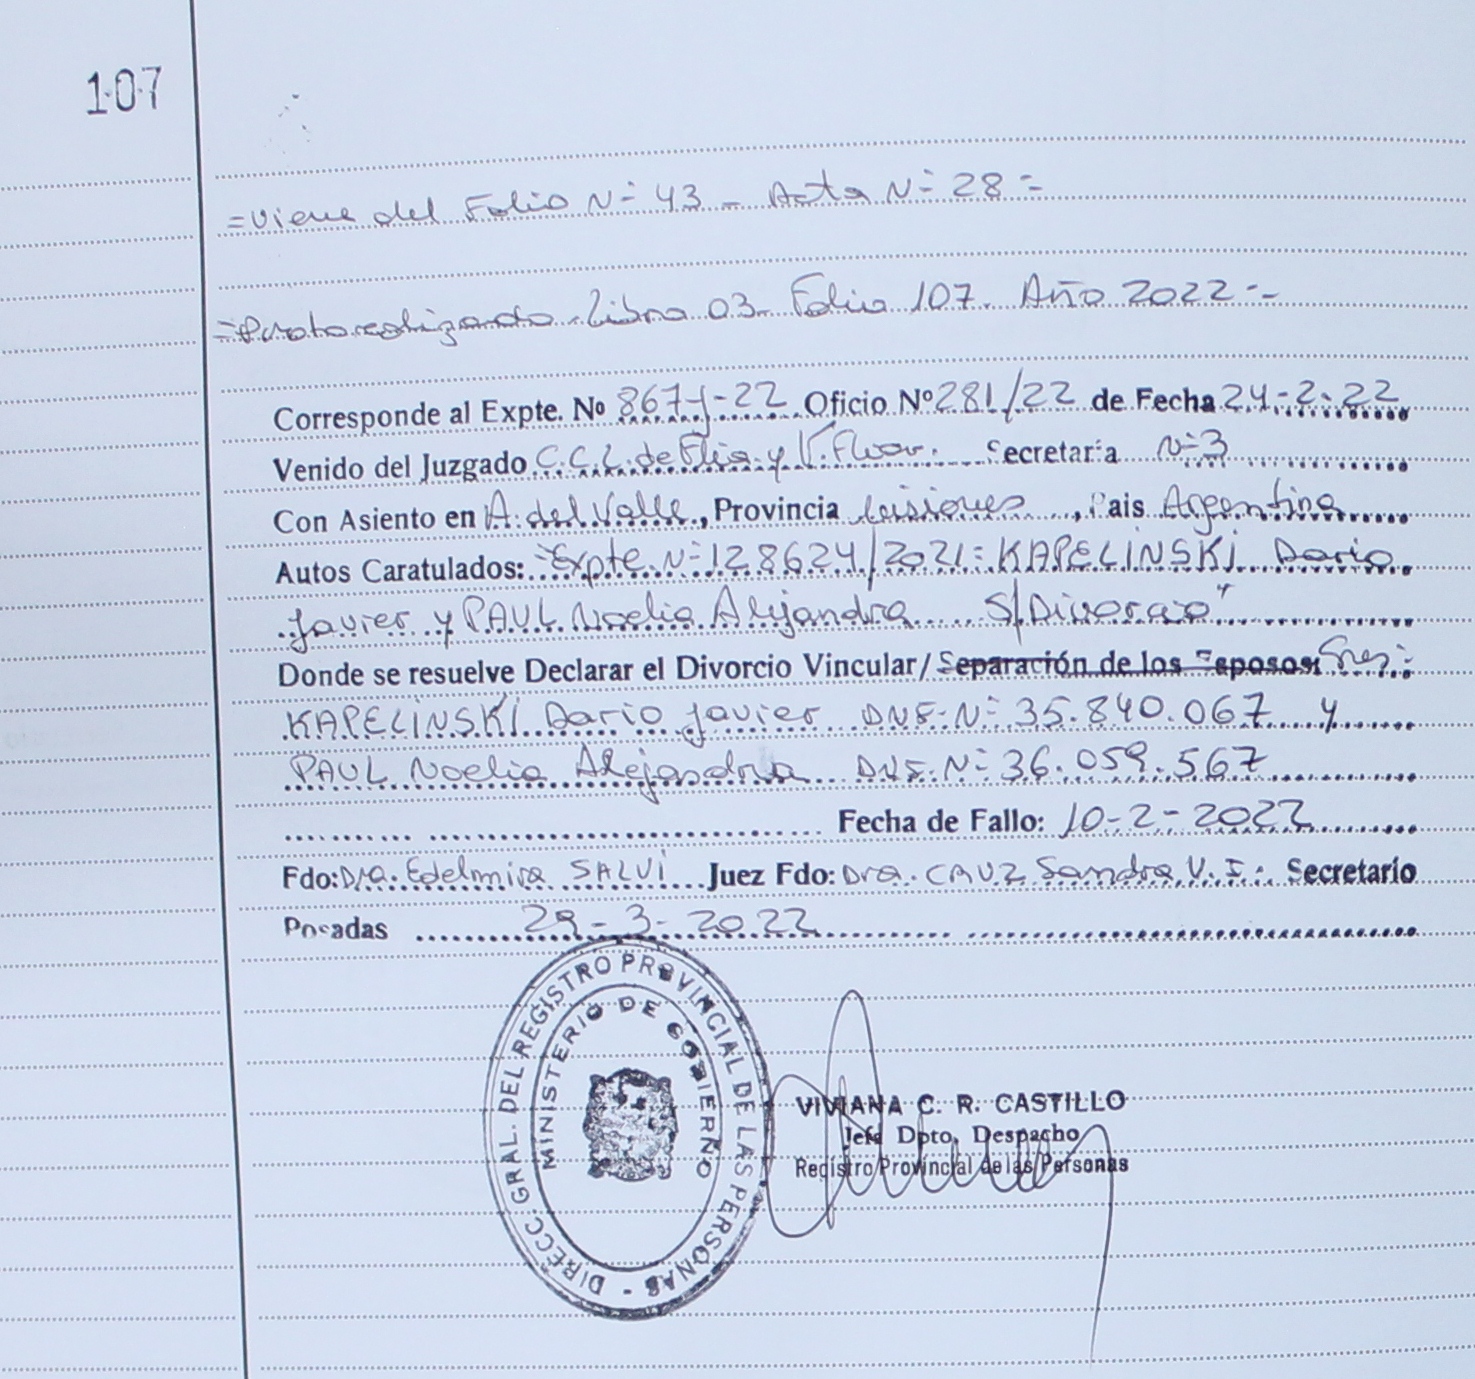 107
=Viene del Folio N= 43 - Acta N= 28 =
=Protocolizado - Libro 03 - Folio 107. Año 2022 =-
Corresponde al Expte. No 867-J-22 Oficio Nº 281/22 de Fecha 24-2-22
Venido del Juzgado C.C.L. de Flia. y V. Fliar. Secretaría N=3
Con Asiento en A. del Valle, Provincia Misiones, País Argentina
Autos Caratulados: "Expte. N= 128624/2021 = KAPELINSKI Dario
Javier y PAUL Noelia Alejandra S/Divorcio"
Donde se resuelve Declarar el Divorcio Vincular/Separación de los Esposos: Sres:
KAPELINSKI Dario Javier DNI-N= 35.840.067 y
PAUL Noelia Alejandra DNI-N= 36.059.567
Fecha de Fallo: 10-2-2022
Fdo: Dra. Edelmira SALVI Juez Fdo: Dra. CRUZ Sandra V. I. Secretario
Posadas 29-3-2022
DIRECC. GRAL. DEL REGISTRO PROVINCIAL DE LAS PERSONAS -
MINISTERIO DE GOBIERNO
VIVIANA C. R. CASTILLO
Jefe Dpto. Despacho
Registro Provincial de las Personas